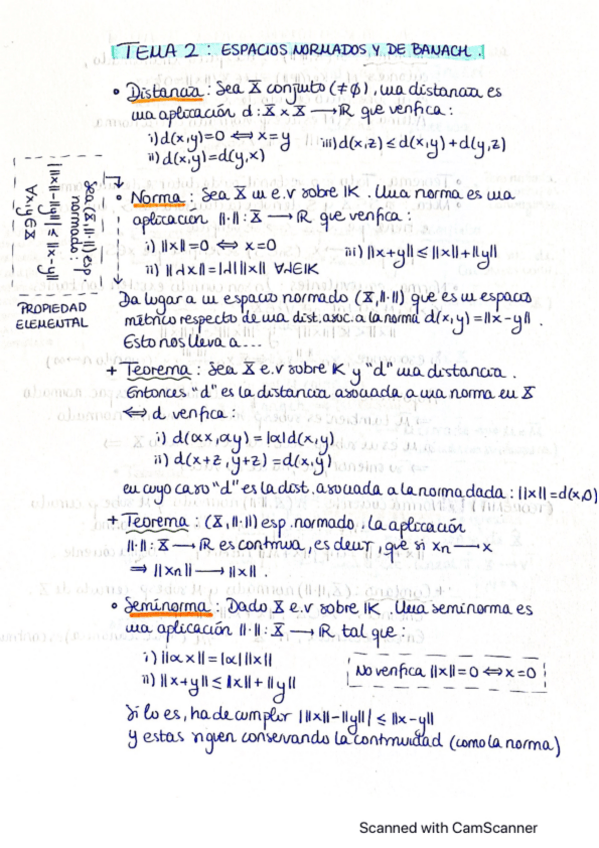 TEMA 2 : ESPACIOS NORMADOS Y DE BANACH.
• Distancia : Sea X conjunto (≠∅), una distancia es
una aplicación d : X x X ⟶ ℝ que verifica :
i) d(x,y)=0 ⟺ x=y    iii) d(x,z) ≤ d(x,y) + d(y,z)
ii) d(x,y)=d(y,x)
Sea (X,||·||) esp
normado :
| ||x||-||y|| | ≤ ||x-y||
∀x,y ∈ X
PROPIEDAD
ELEMENTAL
• Norma : Sea X un e.v sobre IK. Una norma es una
aplicación ||·|| : X ⟶ ℝ que verifica :
i) ||x||=0 ⟺ x=0    iii) ||x+y|| ≤ ||x|| + ||y||
ii) ||λx||=|λ| ||x|| ∀λ∈IK
Da lugar a un espacio normado (X,||·||) que es un espacio
métrico respecto de una dist. asoc. a la norma d(x,y)=||x-y||.
Esto nos lleva a...
+ Teorema : Sea X e.v sobre IK y "d" una distancia.
Entonces "d" es la distancia asociada a una norma en X
⟺ d verifica :
i) d(αx,αy) = |α|d(x,y)
ii) d(x+z,y+z) = d(x,y)
en cuyo caso "d" es la dist. asociada a la norma dada : ||x||=d(x,0)
+ Teorema : (X,||·||) esp. normado, la aplicación
||·|| : X ⟶ ℝ es continua, es decir, que si xn ⟶ x
⟹ ||xn|| ⟶ ||x||.
• Seminorma : Dado X e.v sobre IK. Una seminorma es
una aplicación ||·|| : X ⟶ ℝ tal que :
i) ||αx||=|α| ||x||
ii) ||x+y|| ≤ ||x|| + ||y||
No verifica ||x||=0 ⟺ x=0
Si lo es, ha de cumplir | ||x||-||y|| | ≤ ||x-y||
Y estas siguen conservando la continuidad (como la norma)
Scanned with CamScanner